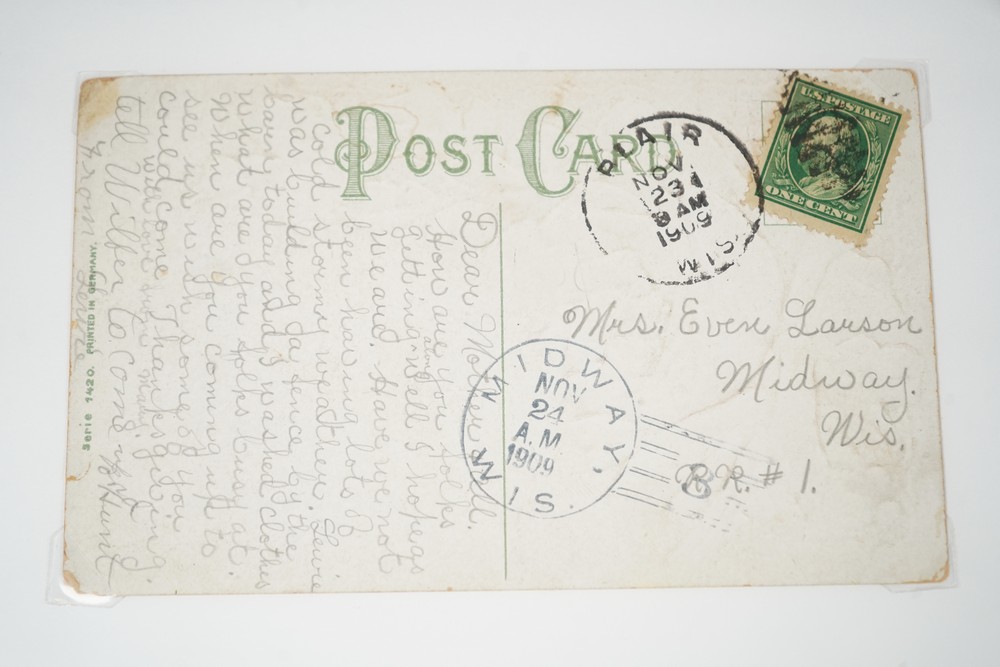 POST CARD
U.S. POSTAGE
ONE CENT
BLAIR
NOV
23
8 AM
1909
WIS.
MIDWAY,
NOV
24
A.M.
1909
WIS.
Mrs. Even Larson
Midway.
Wis.
R.R. # 1.
Dear Mother & all.
How are you folks
getting along
well I hope
we are. Have we not
been having lots of
cold stormy weather. Lewie
was building a fence by the
barn today and washed clothes
What are you folks busy at.
When are you coming up to
see us wish some of you
could come Thanksgiving.
with love from
tell Wilfer to come & Hunt
From
Serie 1420. PRINTED IN GERMANY.